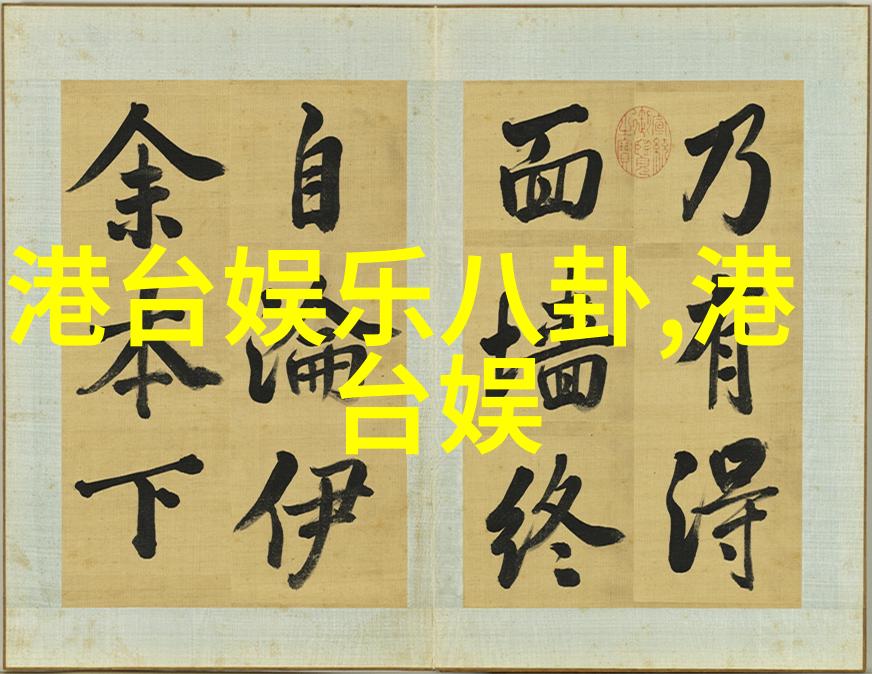 港台娱乐八卦,港
台娱
乃有得
面墙终
自淪伊
余本下